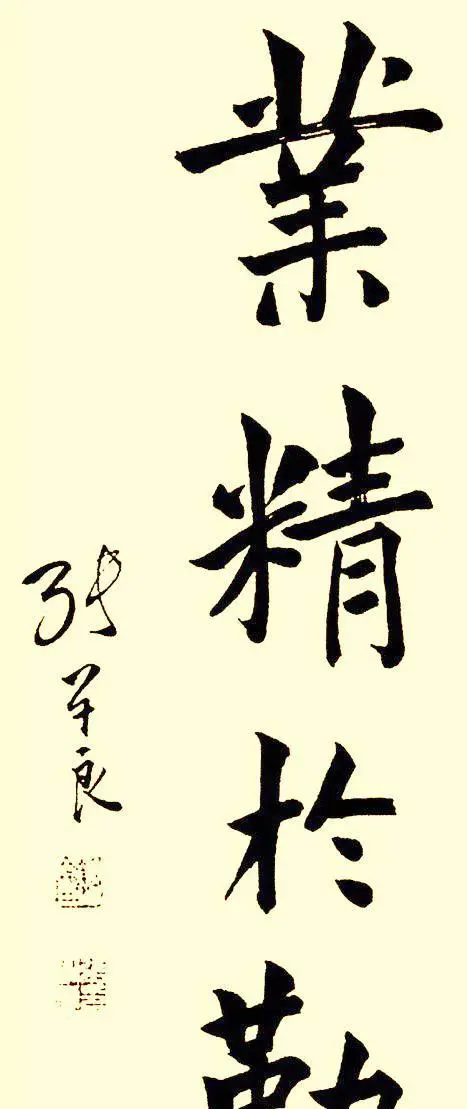 業精於勤
張學良